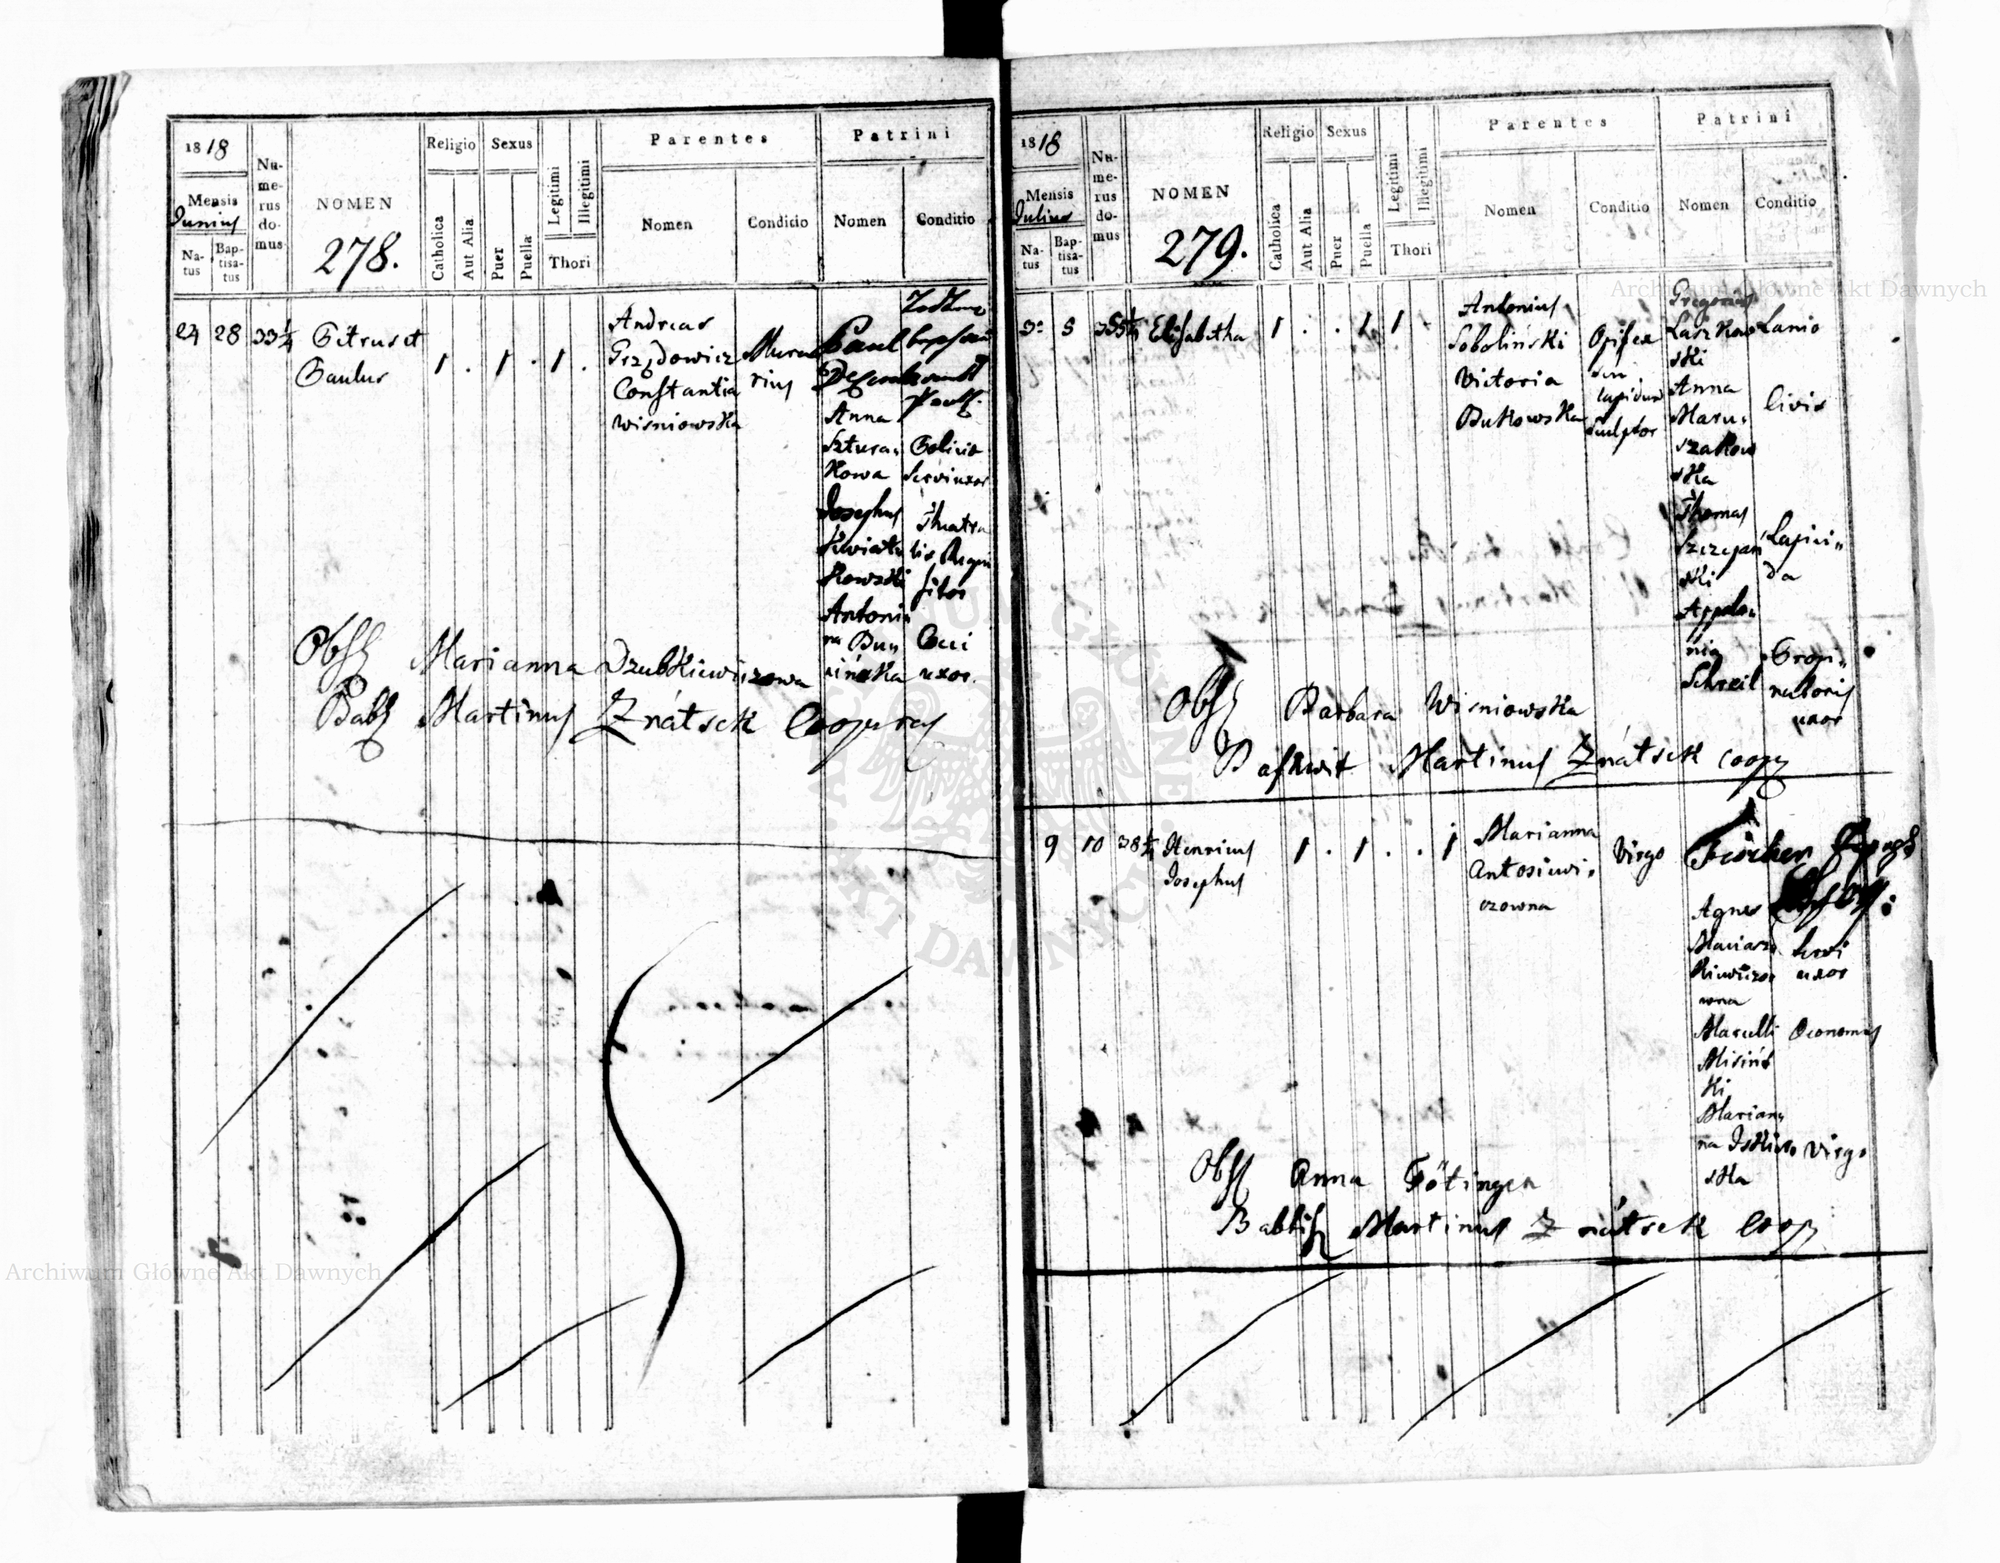 1818
Mensis
Junius
Natus
Baptisatus
Numerus domus
NOMEN
278.
Religio
Catholica
Aut Alia
Sexus
Puer
Puella
Legitimi
Illegitimi
Thori
Parentes
Nomen
Condicio
Patrini
Nomen
Conditio
24 28 33 1/4
Petrus et
Paulus
1 . 1 . 1 .
Andreas
Grzędowicz
Constantia
Wisniowska
Mura
rius
Paul
Anna
Sztura„
kowa
Josephus
Kwiat„
kowski
Antoni„
na Bu„
cińska
uxor
Coci
uxor.
Obst Marianna Dzubkiewiczowa
Bab Martinus Znátsek Cooperas
1818
Mensis
Julius
Natus
Baptisatus
Numerus domus
NOMEN
279.
Religio
Catholica
Aut Alia
Sexus
Puer
Puella
Legitimi
Illegitimi
Thori
Parentes
Nomen
Conditio
Patrini
Nomen
Conditio
3. 5 Elisabetha 1 . . 1 1 .
Antonius
Soboliński
Victoria
Bukowska
Opifex
seu
lapidum
sculptor
Gregorius
Laszkow
ski
Anna
Maru„
szakow
ska
Thomas
Szczepań
ski
Appolo„
nia
Schreil
Lanio
Civis
Lapici„
da
Propi„
natoris
uxor
Obst Barbara Wisniowska
Martinus Znátsek coop
9 10 38 1/4 Henricus
Josephus
1 . 1 . . 1
Marianna
Antosiewi„
czowna
Virgo
Agnes
wna
Marcelli
Misińs
ki
Marian„
na
ska
uxor
Oconomus
Virgo
Obst Anna Fötingen
Martinus Znátsek Coop
Archiwum Główne Akt Dawnych
Archiwum Główne Akt Dawnych